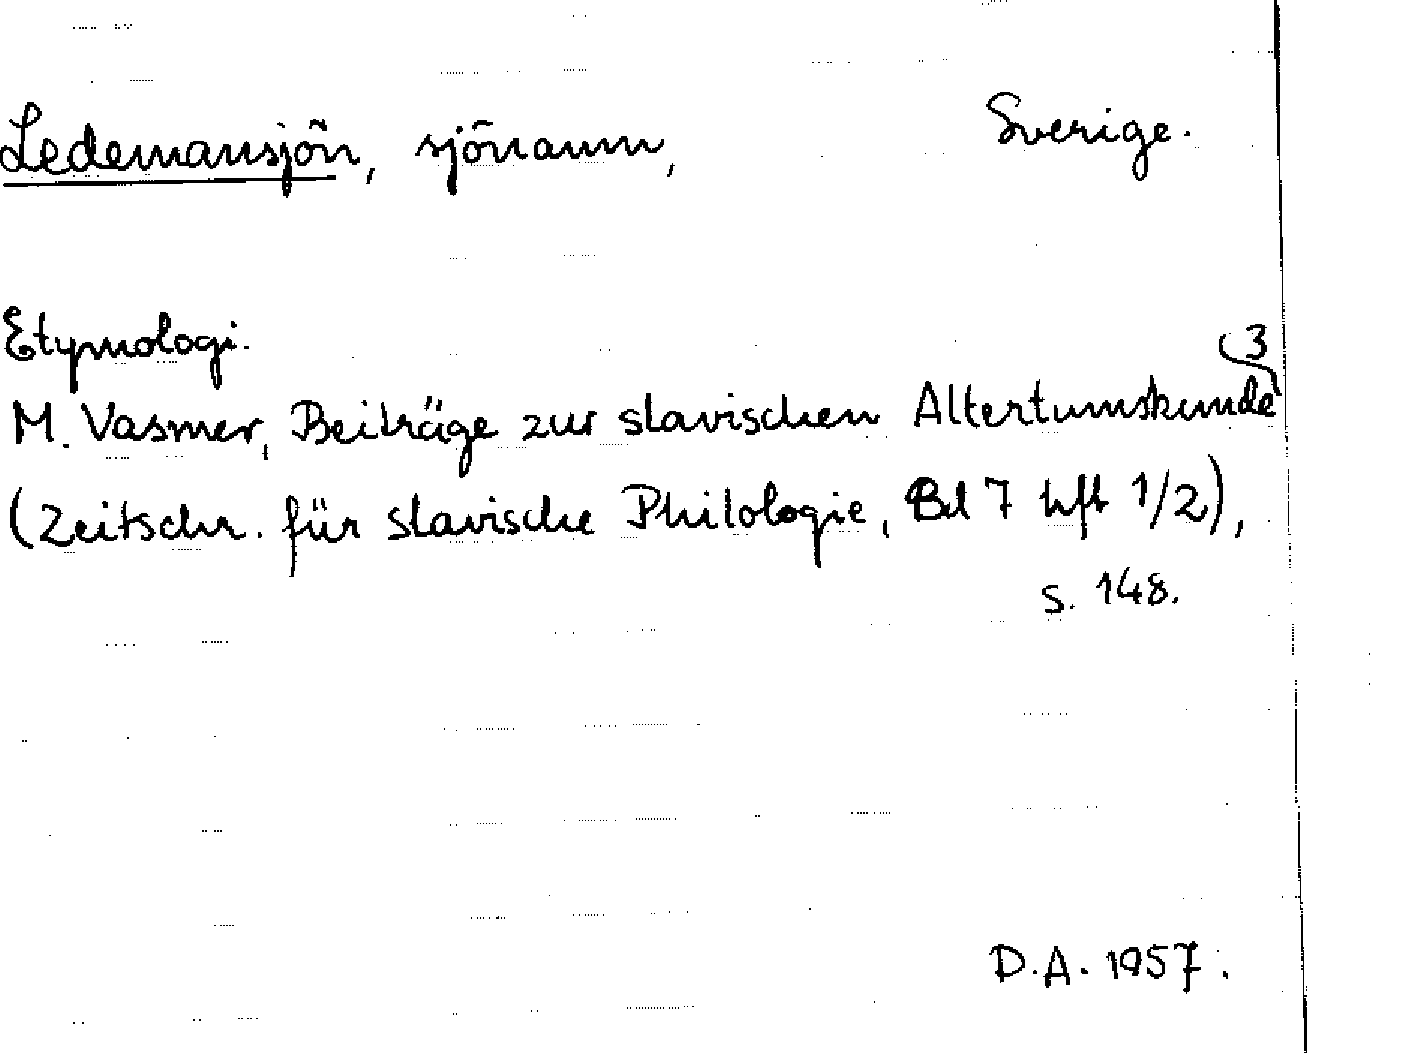 Ledemansjön, sjönamn, Sverige.
Etymologi.
M. Vasmer, Beiträge zur slavischen Altertumskunde 3
(Zeitschr. für slavische Philologie, Bd 7 hft 1/2),
s. 148.
D.A. 1957.